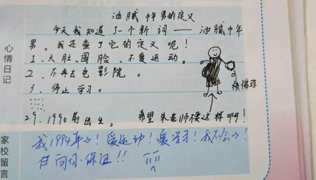 油腻中年男的定义
今天我知道了一个新词——油腻中年
男。我总查了它的定义呢！
1、大肚圆脸，不爱运动。
2、不再去电影院。
3、停止学习。
29、1990前出生。
希望朱老师不要这样啊！
我1994年的！爱运动！爱学习！我不会的！
保证！！
心情日记
家校留言